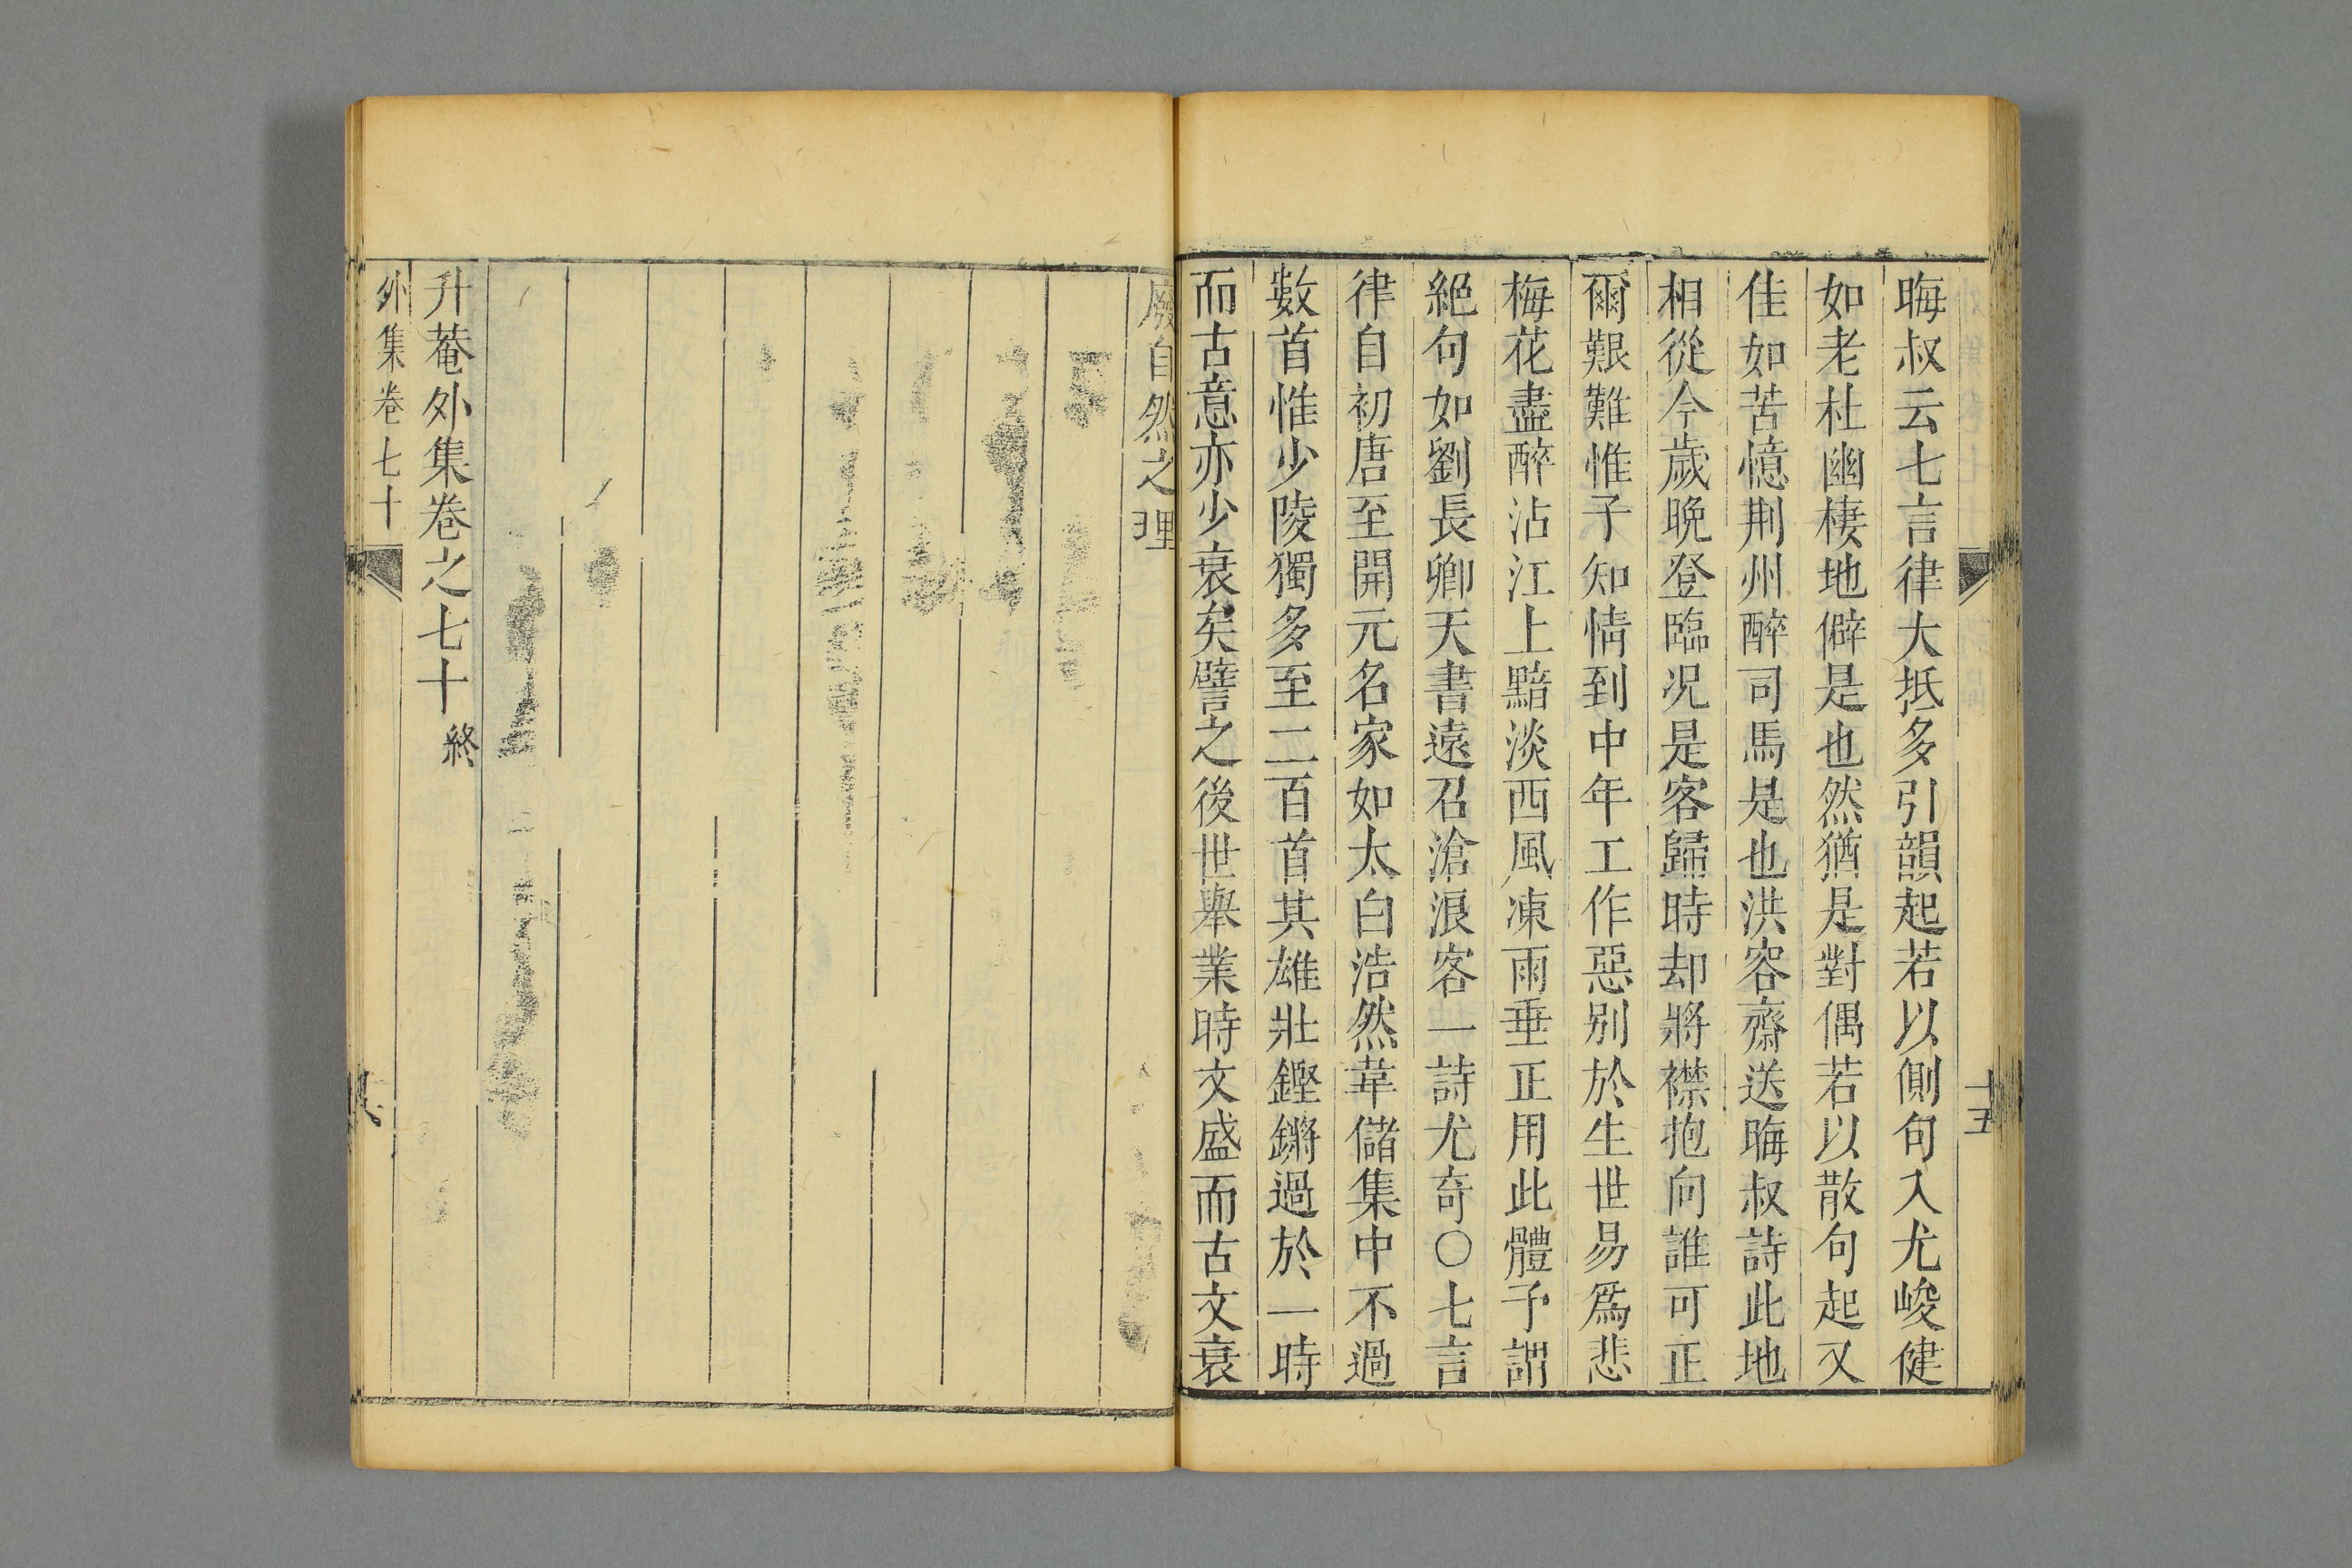 晦叔云七言律大抵多引韻起若以側句入尤峻健
如老杜幽棲地僻是也然猶是對偶若以散句起又
佳如苦憶荆州醉司馬是也洪容齋送晦叔詩此地
相從今歲晚登臨况是客歸時却將襟抱向誰可正
爾艱難惟子知情到中年工作惡别於生世易爲悲
梅花盡醉沾江上黯淡西風凍雨垂正用此體予謂
絕句如劉長卿天書遠召滄浪客一詩尤奇〇七言
律自初唐至開元名家如太白浩然韋儲集中不過
數首惟少陵獨多至二百首其雄壯鏗鏘過於一時
而古意亦少衰矣譬之後世舉業時文盛而古文衰
廢自然之理
升菴外集卷之七十終
外集卷七十
十五